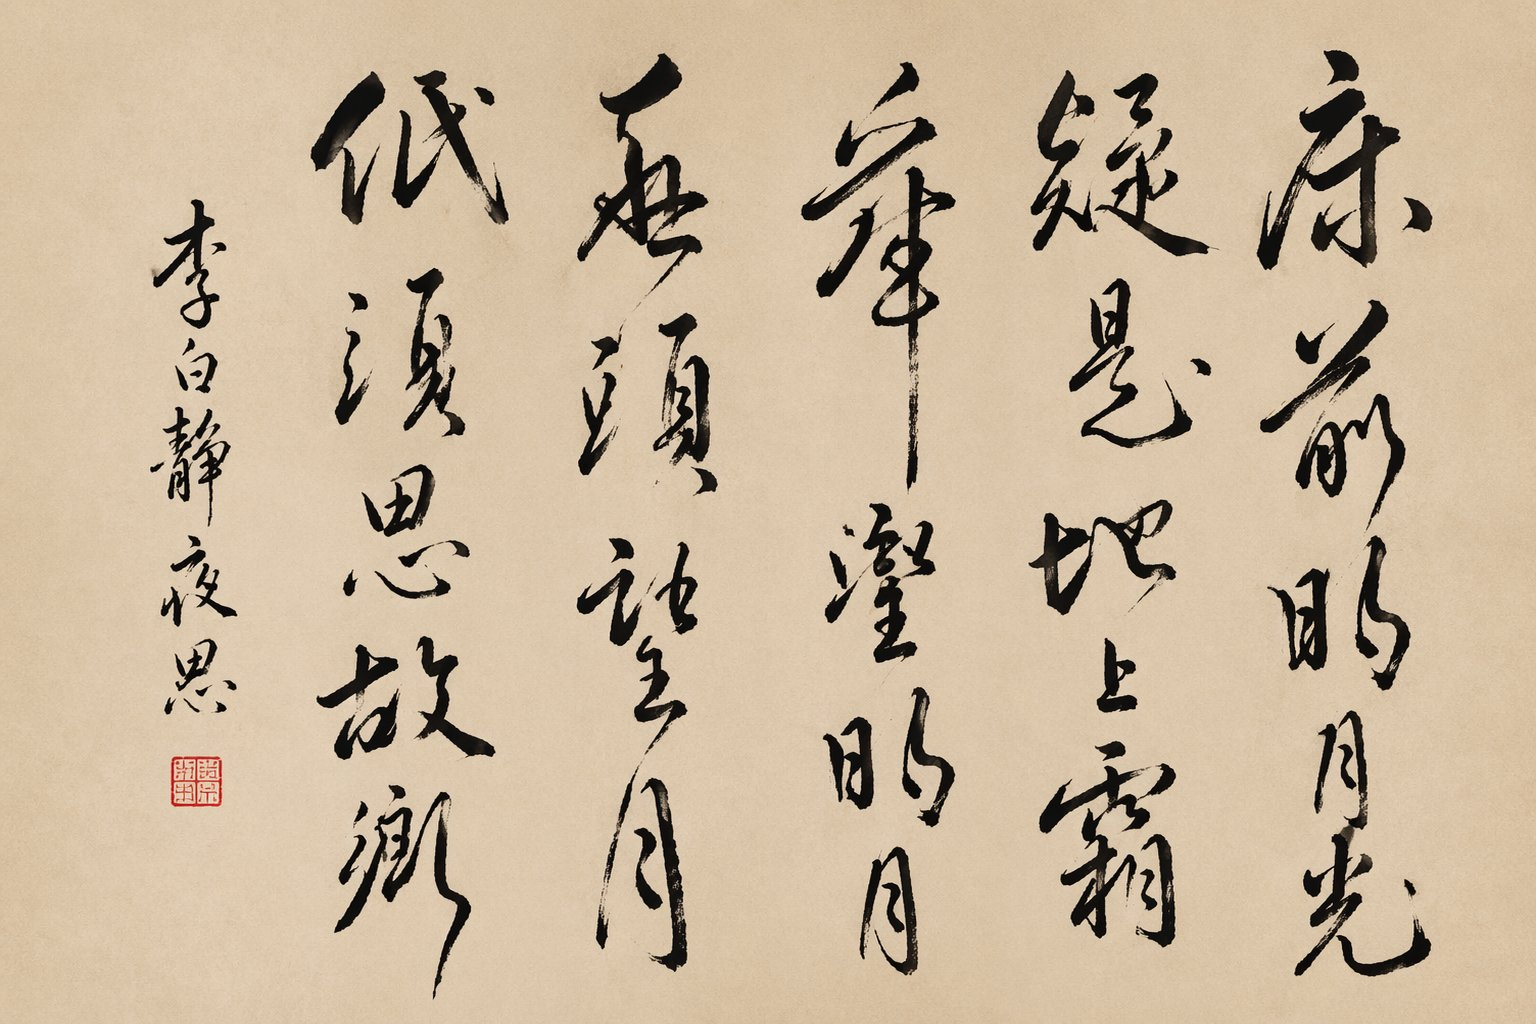 床前明月光
疑是地上霜
望明月
頭望月
低須思故鄉
李白靜夜思